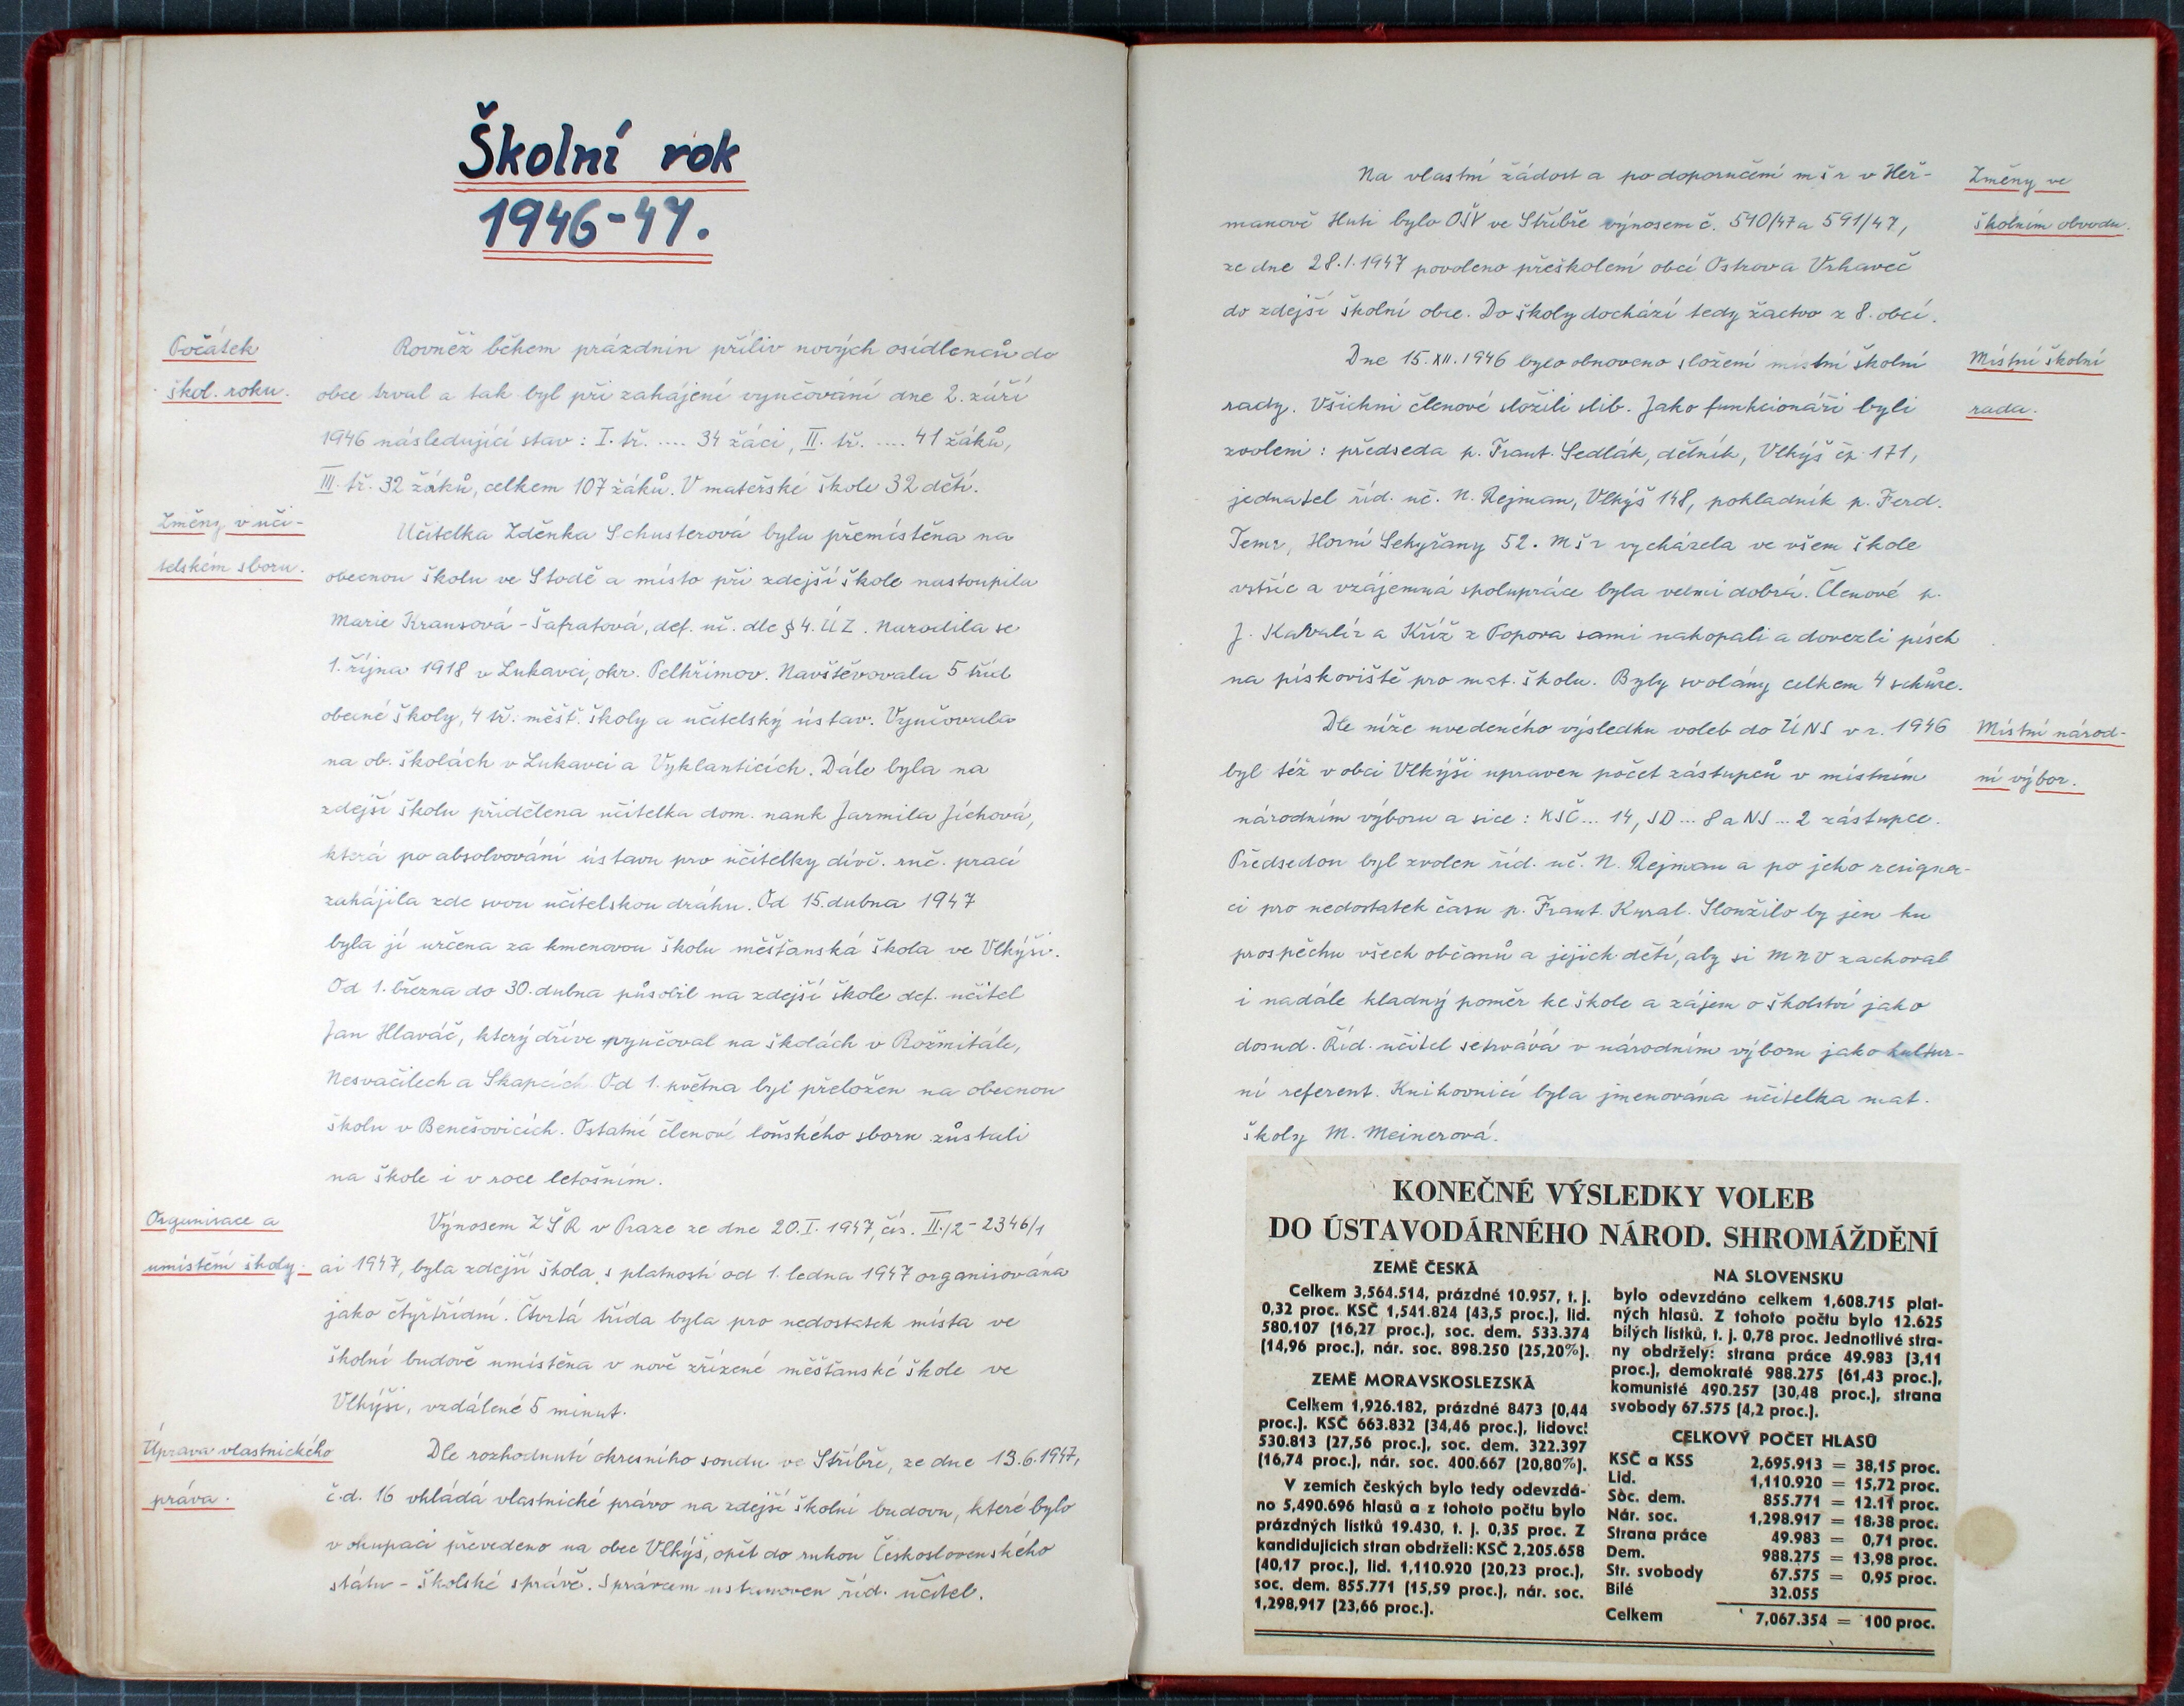 Školní rok
1946-47.
Počátek
škol. roku.
Rovněž během prázdnin příliv nových osídlenců do
obce trval a tak byl při zahájení vyučování dne 2. září
1946 následující stav: I. tř. .... 34 žáci, II. tř. .... 41 žáků,
III. tř. 32 žáků, celkem 107 žáků. V mateřské škole 32 dětí.
Změny v uči-
telském sboru.
Učitelka Zděnka Schusterová byla přemístěna na
obecnou školu ve Stodě a místo při zdejší škole nastoupila
Marie Krausová-Šafratová, def. uč. dle § 4. ÚZ. Narodila se
1. října 1918 v Lukavci, okr. Pelhřimov. Navštěvovala 5 tříd
obecné školy, 4 tř. měšť. školy a učitelský ústav. Vyučovala
na ob. školách v Lukavci a Vyklanticích. Dále byla na
zdejší školu přidělena učitelka dom. nauk Jarmila Jíchová,
která po absolvování ústavu pro učitelky dívč. ruč. prací
zahájila zde svou učitelskou dráhu. Od 15. dubna 1947
byla jí určena za kmenovou školu měšťanská škola ve Vlkýši.
Od 1. března do 30. dubna působil na zdejší škole def. učitel
Jan Hlaváč, který dříve vyučoval na školách v Rožmitále,
Nesvačilech a Skapcích. Od 1. května byl přeložen na obecnou
školu v Benešovicích. Ostatní členové loňského sboru zůstali
na škole i v roce letošním.
Organisace a
umístění školy.
Výnosem ZŠR v Praze ze dne 20.I. 1947, čís. II./2-2346/1
ai 1947, byla zdejší škola s platností od 1. ledna 1947 organisována
jako čtyřtřídní. Čtvrtá třída byla pro nedostatek místa ve
školní budově umístěna v nově zřízené měšťanské škole ve
Vlkýši, vzdálené 5 minut.
Úprava vlastnického
práva.
Dle rozhodnutí okresního soudu ve Stříbře, ze dne 13.6.1947,
č.d. 16 vkládá vlastnické právo na zdejší školní budovu, které bylo
v okupaci převedeno na obec Vlkýš, opět do rukou Československého
státu - školské správě. Správcem ustanoven říd. učitel.
Na vlastní žádost a po doporučení mšr v Heř-
manově Huti bylo OŠV ve Stříbře výnosem č. 590/47 a 591/47,
ze dne 28.1.1947 povoleno přeškolení obcí Ostrov a Vrhaveč
do zdejší školní obce. Do školy dochází tedy žactvo z 8. obcí.
Změny ve
školním obvodu.
Dne 15.XII.1946 bylo obnoveno složení místní školní
rady. Všichni členové složili slib. Jako funkcionáři byli
zvoleni: předseda p. Frant. Sedlák, dělník, Vlkýš čp. 171,
jednatel říd. uč. N. Rejman, Vlkýš 148, pokladník p. Ferd.
Temr, Horní Sekyřany 52. Mšr vycházela ve všem škole
vstříc a vzájemná spolupráce byla velmi dobrá. Členové p.
J. Kavalír a Kříž z Popova sami nakopali a dovezli písek
na pískoviště pro mat. školu. Byly svolány celkem 4 schůze.
Místní školní
rada.
Dle níže uvedeného výsledku voleb do ÚNS v r. 1946
byl též v obci Vlkýši upraven počet zástupců v místním
národním výboru a sice: KSČ... 14, SD... 8 a NS... 2 zástupce.
Předsedou byl zvolen říd. uč. N. Rejman a po jeho resigna-
ci pro nedostatek času p. Frant. Kural. Sloužilo by jen ku
prospěchu všech občanů a jejich dětí, aby si MNV zachoval
i nadále kladný poměr ke škole a zájem o školství jako
dosud. Říd. učitel setrvává v národním výboru jako kultur-
ní referent. Knihovnicí byla jmenována učitelka mat.
školy M. Meinerová.
Místní národ-
ní výbor.
KONEČNÉ VÝSLEDKY VOLEB
DO ÚSTAVODÁRNÉHO NÁROD. SHROMÁŽDĚNÍ
ZEMĚ ČESKÁ
Celkem 3,564.514, prázdné 10.957, t. j.
0,32 proc. KSČ 1,541.824 (43,5 proc.), lid.
580,107 (16,27 proc.), soc. dem. 533.374
(14,96 proc.), nár. soc. 898.250 (25,20%).
ZEMĚ MORAVSKOSLEZSKÁ
Celkem 1,926.182, prázdné 8473 (0,44
proc.), KSČ 663.832 (34,46 proc.), lidovci
530.813 (27,56 proc.), soc. dem. 322.397
(16,74 proc.), nár. soc. 400.667 (20,80%).
V zemích českých bylo tedy odevzdá-
no 5,490.696 hlasů a z tohoto počtu bylo
prázdných lístků 19.430, t. j. 0,35 proc. Z
kandidujících stran obdrželi: KSČ 2,205.658
(40,17 proc.), lid. 1,110.920 (20,23 proc.),
soc. dem. 855.771 (15,59 proc.), nár. soc.
1,298,917 (23,66 proc.).
NA SLOVENSKU
bylo odevzdáno celkem 1,608.715 plat-
ných hlasů. Z tohoto počtu bylo 12.625
bílých lístků, t. j. 0,78 proc. Jednotlivé stra-
ny obdržely: strana práce 49.983 (3,11
proc.), demokraté 988.275 (61,43 proc.),
komunisté 490.257 (30,48 proc.), strana
svobody 67.575 (4,2 proc.).
CELKOVÝ POČET HLASŮ
KSČ a KSS 2,695.913 = 38,15 proc.
Lid. 1,110.920 = 15,72 proc.
Soc. dem. 855.771 = 12.11 proc.
Nár. soc. 1,298.917 = 18,38 proc.
Strana práce 49.983 = 0,71 proc.
Dem. 988.275 = 13,98 proc.
Str. svobody 67.575 = 0,95 proc.
Bílé 32.055
Celkem 7,067.354 = 100 proc.